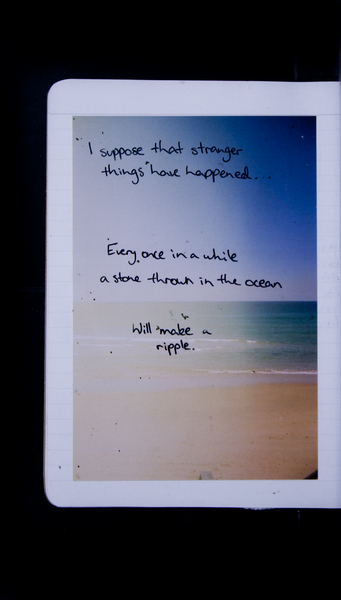 I suppose that stranger
things have happened...
Every once in a while
a stone thrown in the ocean
Will make a
ripple.